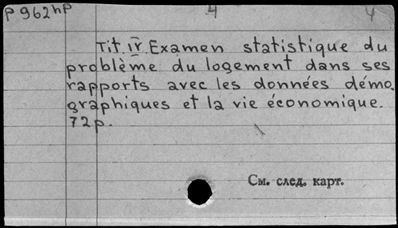 P 962пр 4 4
Tit. IV. Examen statistique du
problème du logement dans ses
rapports avec les données démo
graphiques et la vie économique.
72p.
См. след. карт.